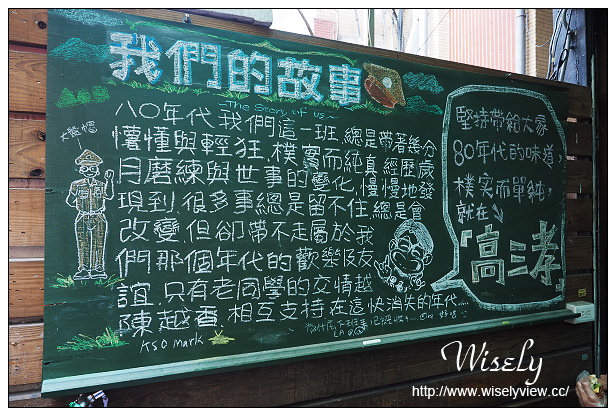 我們的故事
The Story of us~
八〇年代我們這一班,總是帶著幾分
懵懂與輕狂.樸實而純真.經歷歲
月磨練與世事的變化,慢慢地發
現到.很多事總是留不住.總是會
改變.但卻帶不走屬於我
們那個年代的歡樂及友
誼.只有老同學的交情越
陳越香.相互支持.在這快消失的年代....
KSO mark
大盤帽
堅持帶給大家
80年代的味道,
樸實而單純,
就在
「高三孝
Wisely
http://www.wiselyview.cc/